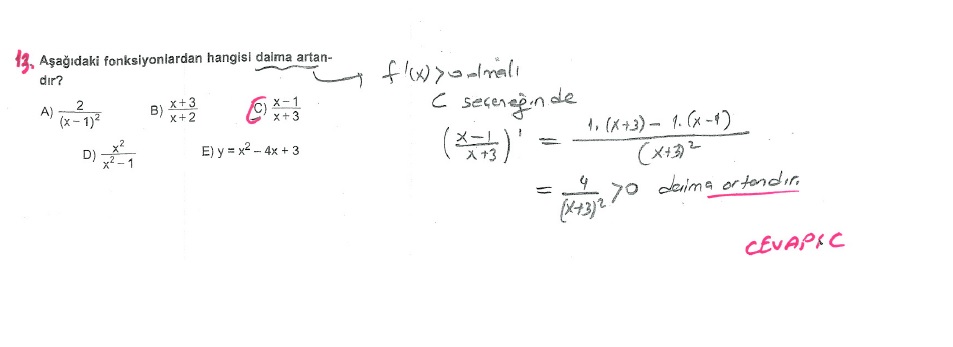 13. Aşağıdaki fonksiyonlardan hangisi daima artan-
dır?
A) 2/(x – 1)² B) x + 3/x + 2 C) x – 1/x + 3
D) x²/x² – 1 E) y = x² – 4x + 3
f'(x) > 0 olmalı
C seçeneğinde
(x – 1/x + 3)' = 1.(x+3) – 1.(x – 1)/(x+3)²
= 4/(x+3)² > 0 daima artandır.
CEVAP: C